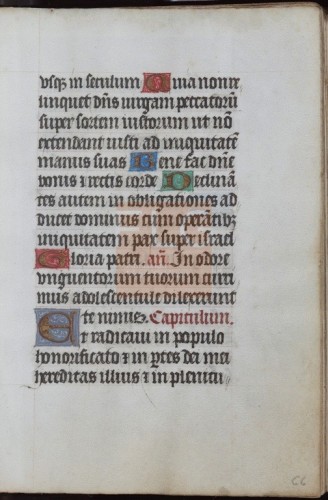 vsqꝫ in seculum Quia non re
linquet dn̄s uirgam peccatorū
super sortem iustorum ut nō
extendant iusti ad iniquitatē
manus suas Bene fac dn̄e
bonis et rectis corde Declinā
tes autem in obligationes ad
ducet dominus cum operātibꝫ
iniquitatem pax super israel
Gloria patri. an̄. In odore
vnguentorum tuorum curri
mus adolescentule dilexerunt
te nimis. Capitulum.
Et radicaui in populo
honorificato et in p̄tes dei mei
hereditas illius et in plenitu
C6